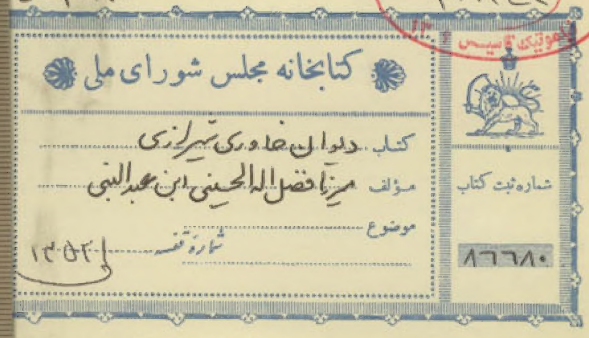 کتابخانه مجلس شورای ملی
کتاب دیوان خاوری شیرازی
مؤلف میرزا فضل اله الحسینی ابن عبدالنبی
موضوع
شماره قفسه ۱۳۵۲۱
شماره ثبت کتاب
۸۶۶۸۰
تأسیس